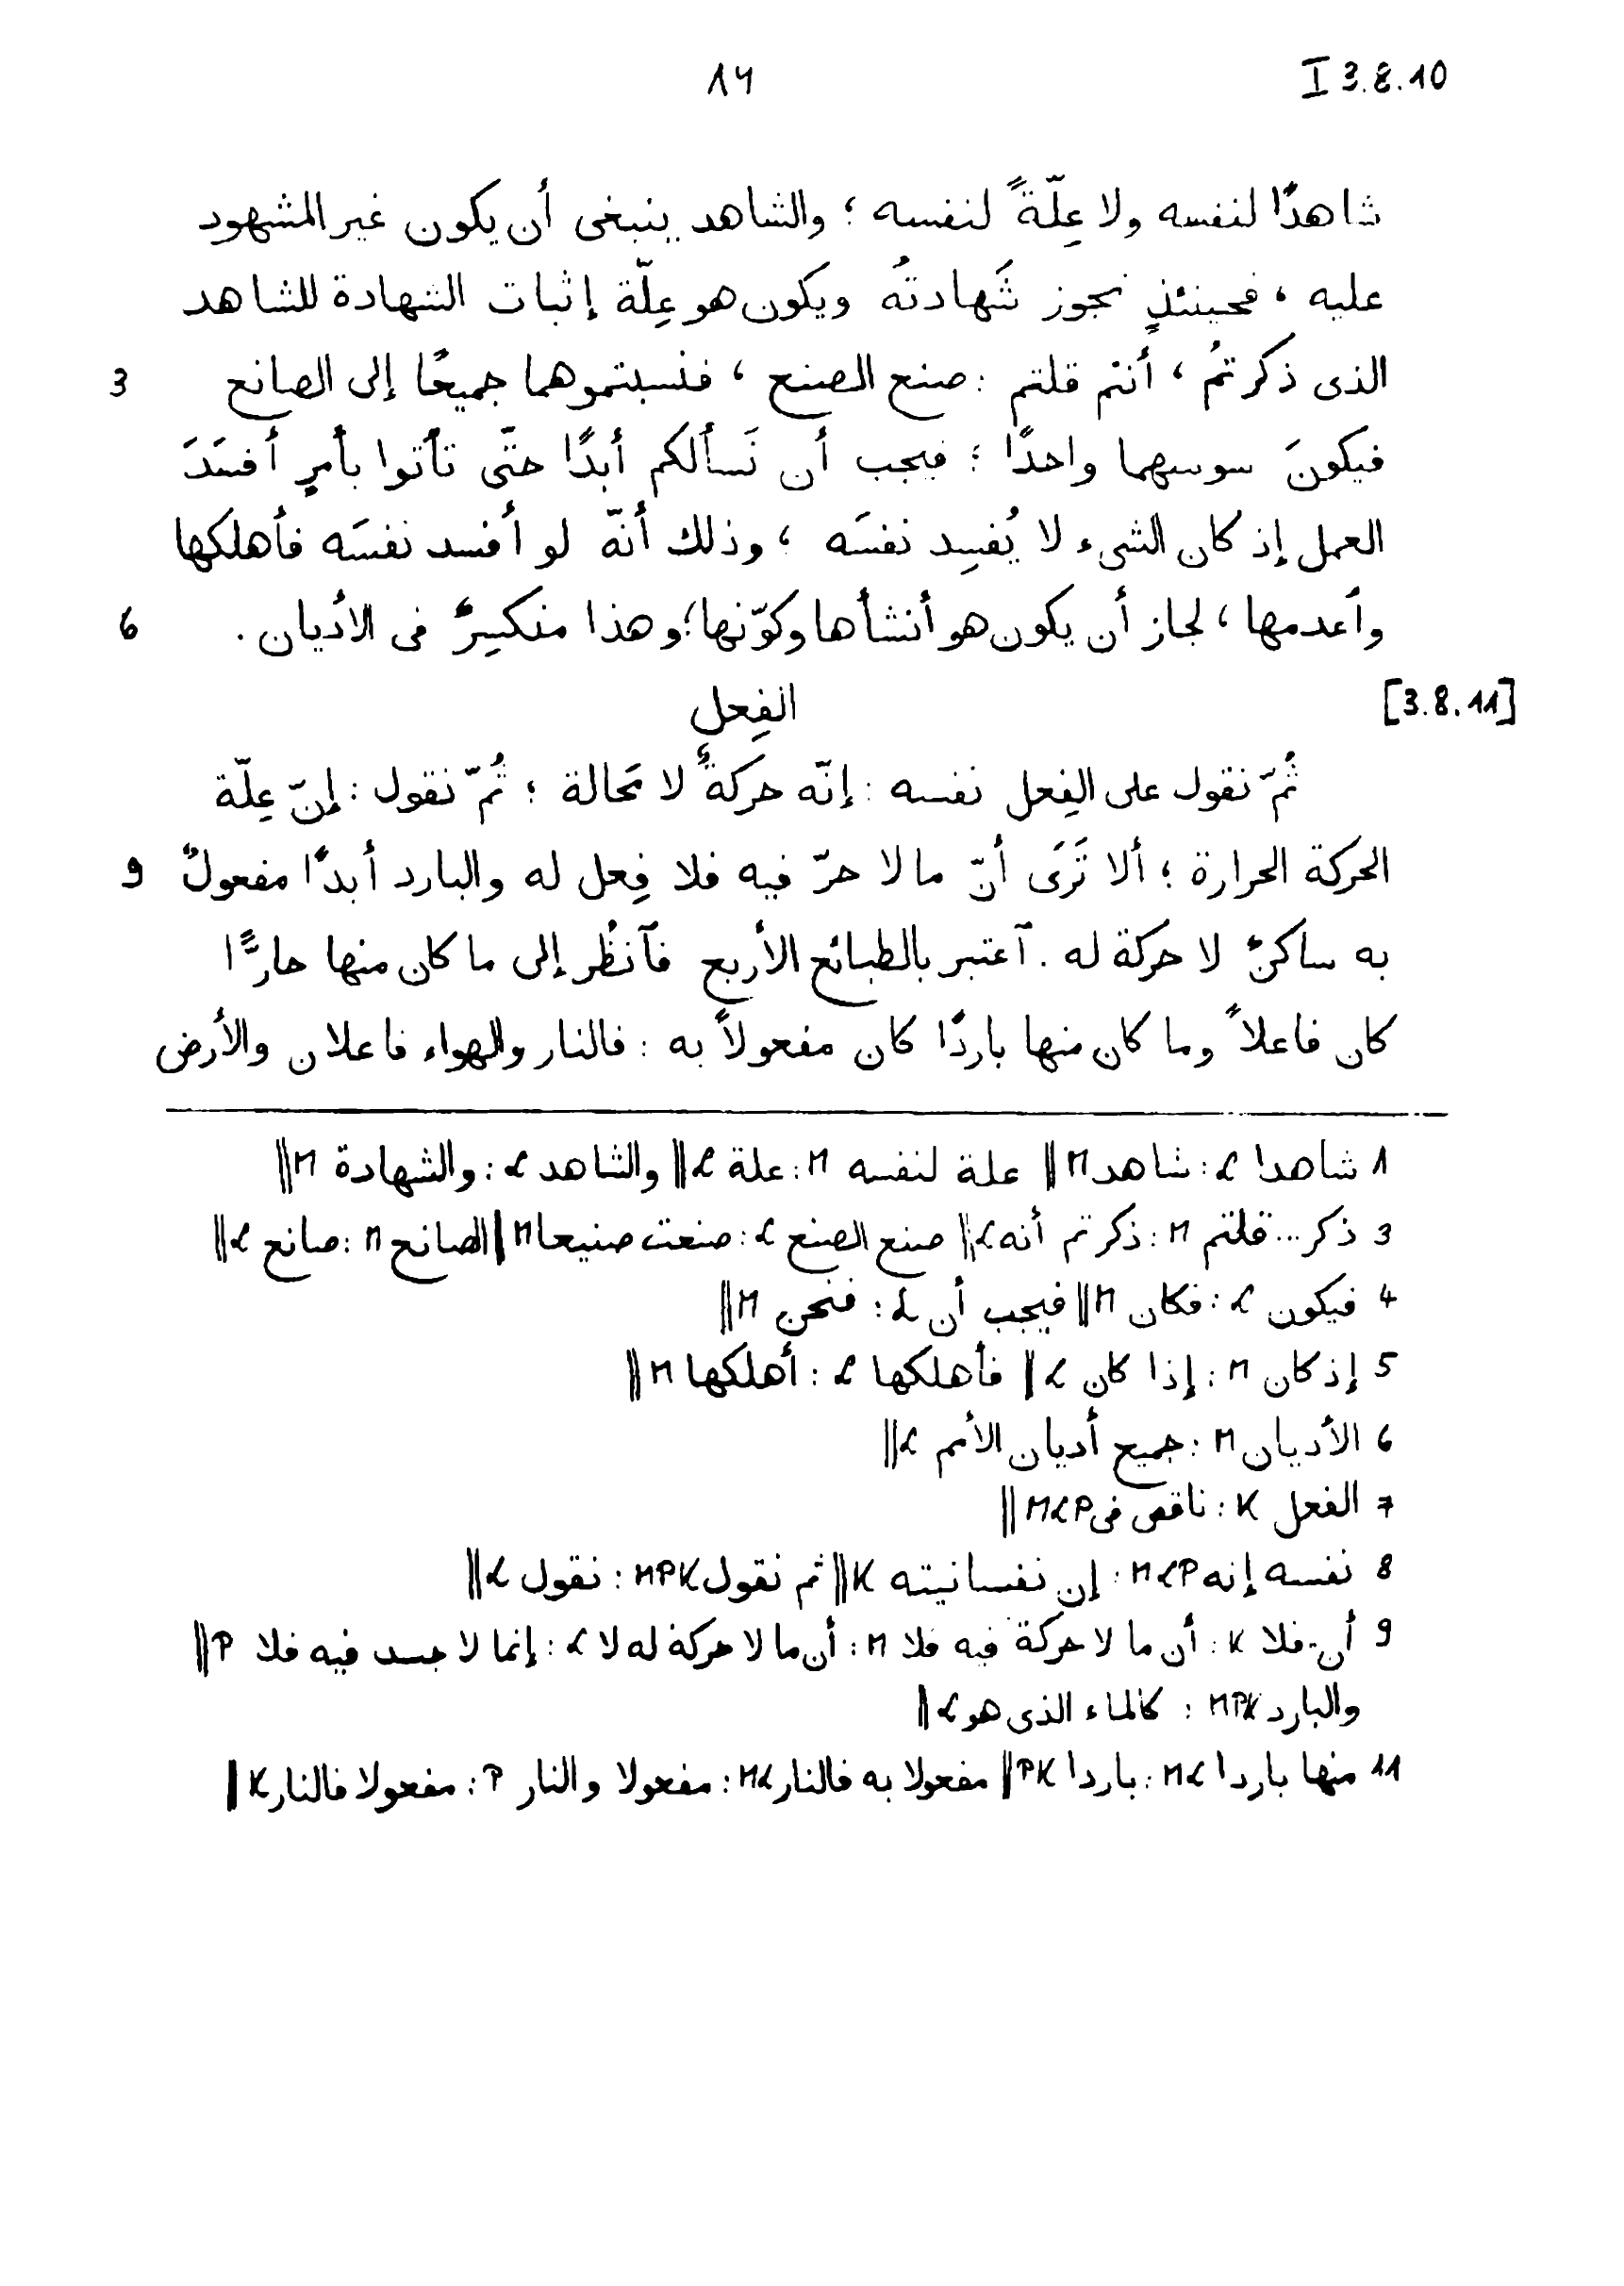 I 3.8.10
١٤
شاهدًا لنفسه ولا عِلّةً لنفسه ؛ والشاهد ينبغى أن يكون غير المشهود
عليه ، فحينئذٍ تجوز شَهادتُه ويكون هو عِلّة إثبات الشهادة للشاهد
3 الذى ذكرتمُ ، أنتم قلتم : صنع الصنع ، فنسبتموهما جميعًا إلى الصانع
فيكونَ سوسهما واحدًا ؛ فيجب أن نَسألكم أبدًا حتّى تأتوا بأمرٍ أفسَدَ
العمل إذ كان الشىء لا يُفسِد نفسَه ؛ وذلك أنّه لو أفسد نفسَه فأهلكها
6 وأعدمها ، لجاز أن يكون هو أنشأها وكوّنها ؛ وهذا منكسِرٌ فى الأديان .
[3.8.11] الفِعل
ثُمّ نقول على الفِعل نفسه : إنّه حركةٌ لا محَالة ؛ ثُمّ نقول : إنّ عِلّة
9 الحركة الحرارة ؛ ألا تَرَى أنّ ما لا حرّ فيه فلا فِعل له والبارد أبدًا مفعولٌ
به ساكنٌ لا حركة له . آعتبر بالطبائع الأربع فآنظُر إلى ما كان منها حارًّا
كان فاعلاً وما كان منها باردًا كان مفعولاً به : فالنار والهواء فاعلان والأرض
1 شاهدا L : شاهد M ‖ علة لنفسه M : علة L ‖ والشاهد L : والشهادة M ‖
3 ذكر... قلتم M : ذكرتم أنه L ‖ صنع الصنع L : صنعت صنيعا M ‖ الصانع M : صانع L ‖
4 فيكون L : فكان M ‖ فيجب أن L : فنحن M ‖
5 إذ كان M : إذا كان L ‖ فأهلكها L : أهلكها M ‖
6 الأديان M : جميع أديان الأمم L ‖
7 الفعل K : ناقص فى MLP ‖
8 نفسه إنه MLP : إن نفسانيته K ‖ ثم نقول MPK : نقول L ‖
9 أن - فلا K : أن ما لا حركة فيه فلا M : أن ما لا حركة له لا L : إنما لا جسد فيه فلا P ‖
والبارد MPK : كالماء الذى هو L ‖
11 منها باردا ML : باردا PK ‖ مفعولا به فالنار ML : مفعولا والنار P : مفعولا فالنار K ‖